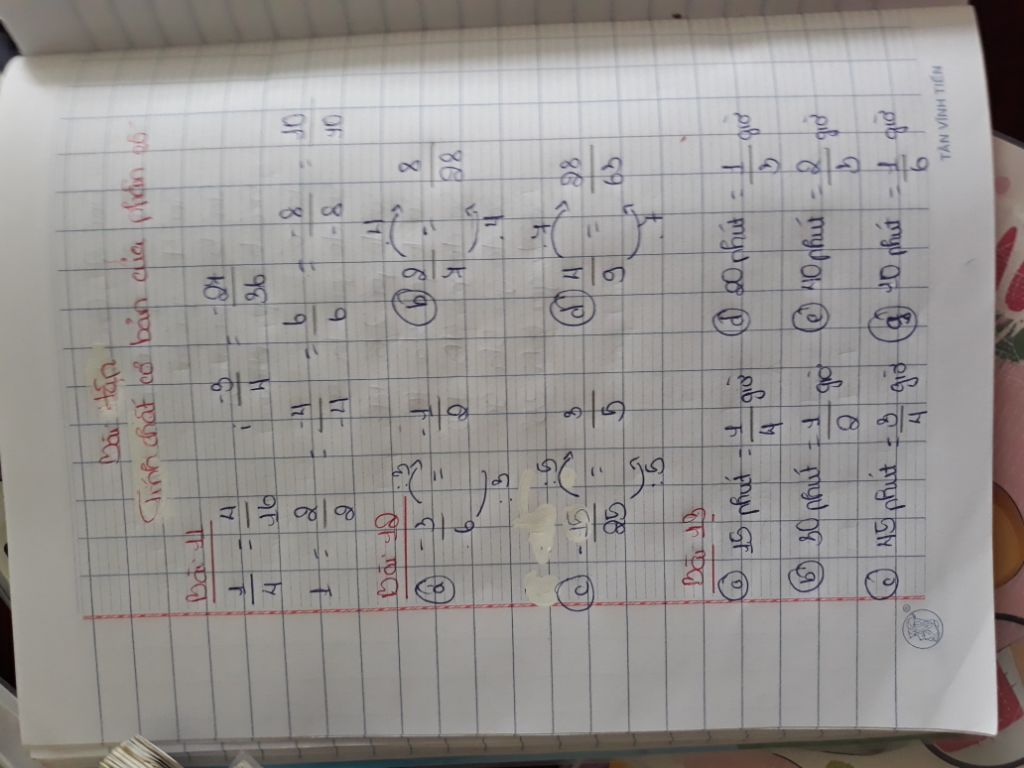 Bài tập
Tính chất cơ bản của phân số
Bài 11
1/4 = 4/16 ; -3/4 = -24/36
1 = 2/2 = -4/-4 = 6/6 = -8/-8 = 10/10
Bài 12
:3 .4
a) -3/6 = -1/2 b) 2/7 = 8/28
:3 .4
:5 .7
c) -15/25 = 3/5 d) 4/9 = 28/63
:5 .7
Bài 13
a) 15 phút = 1/4 giờ d) 20 phút = 1/3 giờ
b) 30 phút = 1/2 giờ e) 40 phút = 2/3 giờ
c) 45 phút = 3/4 giờ g) 10 phút = 1/6 giờ
TÂN VĨNH TIẾN